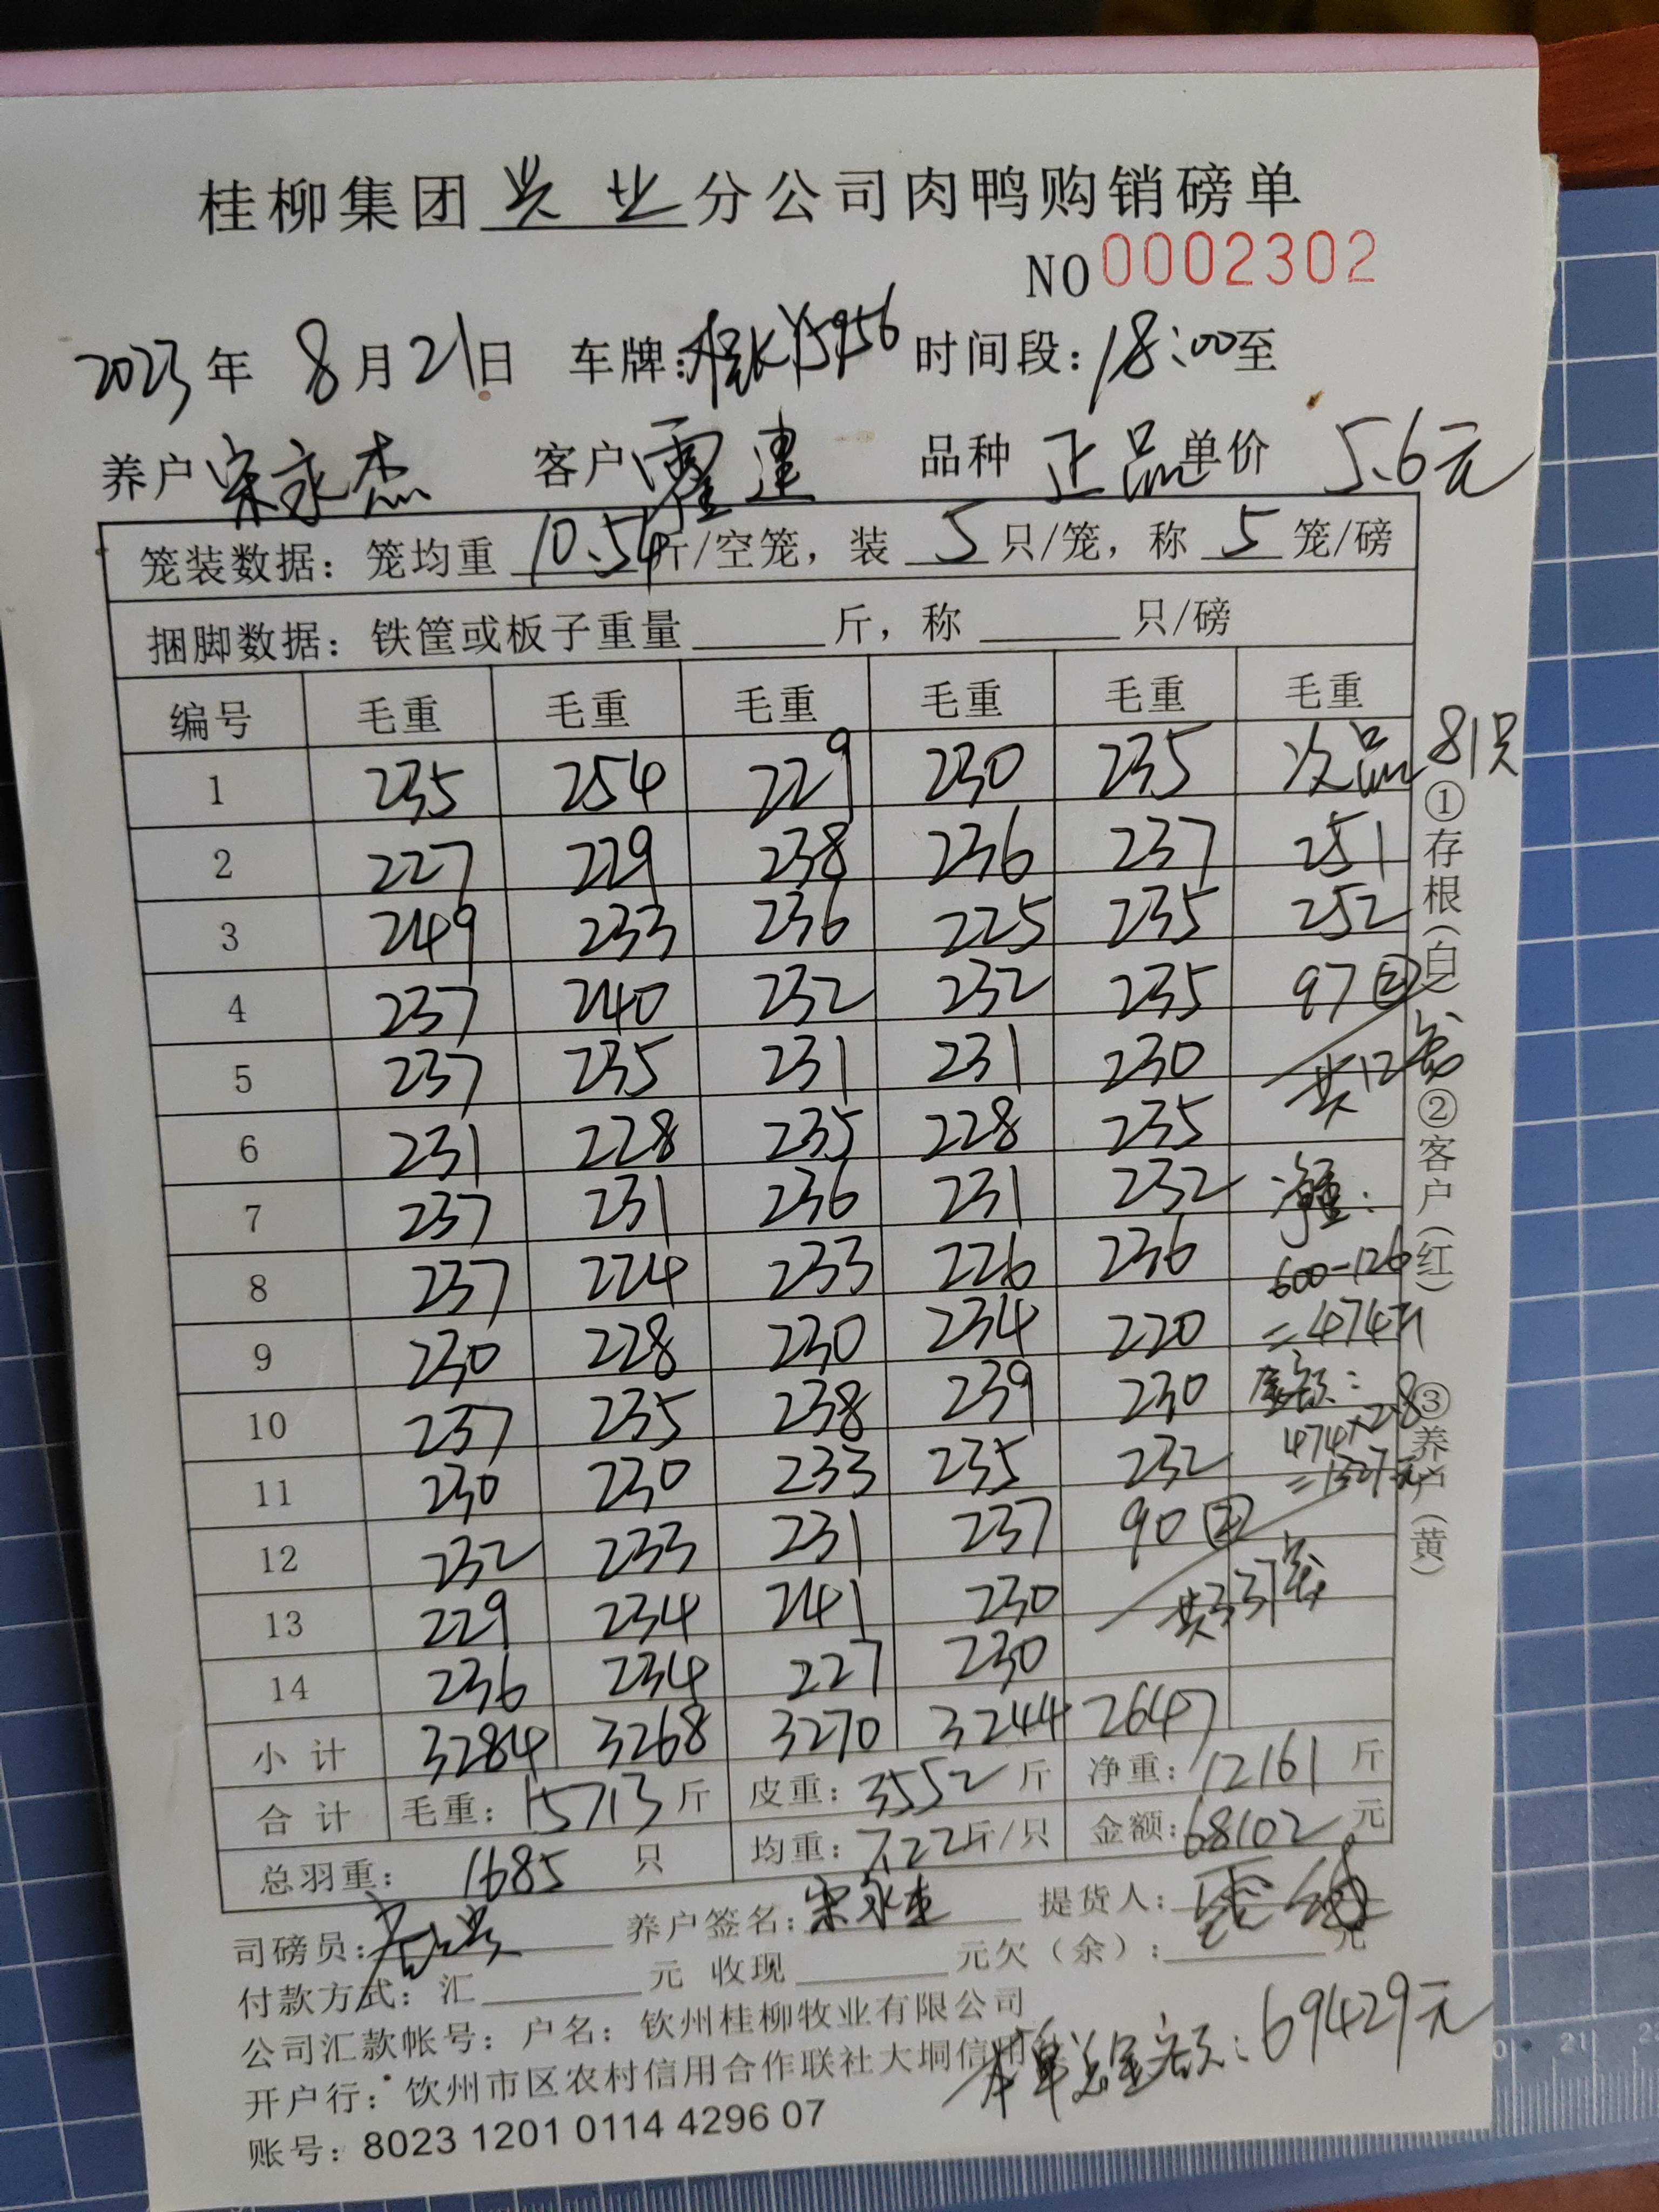 桂柳集团兴业分公司肉鸭购销磅单
NO 0002302
2023年 8月21日 车牌:桂KY5956 时间段:18:00至
养户 宋永杰 客户 霍建 品种 正品 单价 5.6元
笼装数据: 笼均重 10.54斤/空笼, 装 5 只/笼, 称 5 笼/磅
捆脚数据: 铁筐或板子重量 斤, 称 只/磅
编号 毛重 毛重 毛重 毛重 毛重 毛重
1 235 254 229 230 235 次品 81只
2 227 229 238 236 237 251
3 249 233 236 225 235 252
4 237 240 232 232 235 97②
5 237 235 231 231 230 共12笼
6 231 228 235 228 235
7 237 231 236 231 232 净重:
8 237 224 233 226 236 600-126
9 230 228 230 234 220 =474斤
10 237 235 238 239 230 金额:
474×2.8
11 230 230 233 235 232 =1327元
12 232 233 231 237 90②
13 229 234 241 230 共337笼
14 236 234 227 230
小计 3284 3268 3270 3244 2647
合计 毛重:15713斤 皮重:3552斤 净重:12161斤
总羽重: 1685 只 均重:7.22斤/只 金额:68102元
司磅员: 养户签名:宋永杰 提货人:
付款方式: 汇 元 收现 元欠(余): 元
公司汇款帐号: 户名: 钦州桂柳牧业有限公司
开户行: 钦州市区农村信用合作联社大垌信用
本单总金额:69429元
账号: 8023 1201 0114 4296 07
①存根(白) ②客户(红) ③养户(黄)